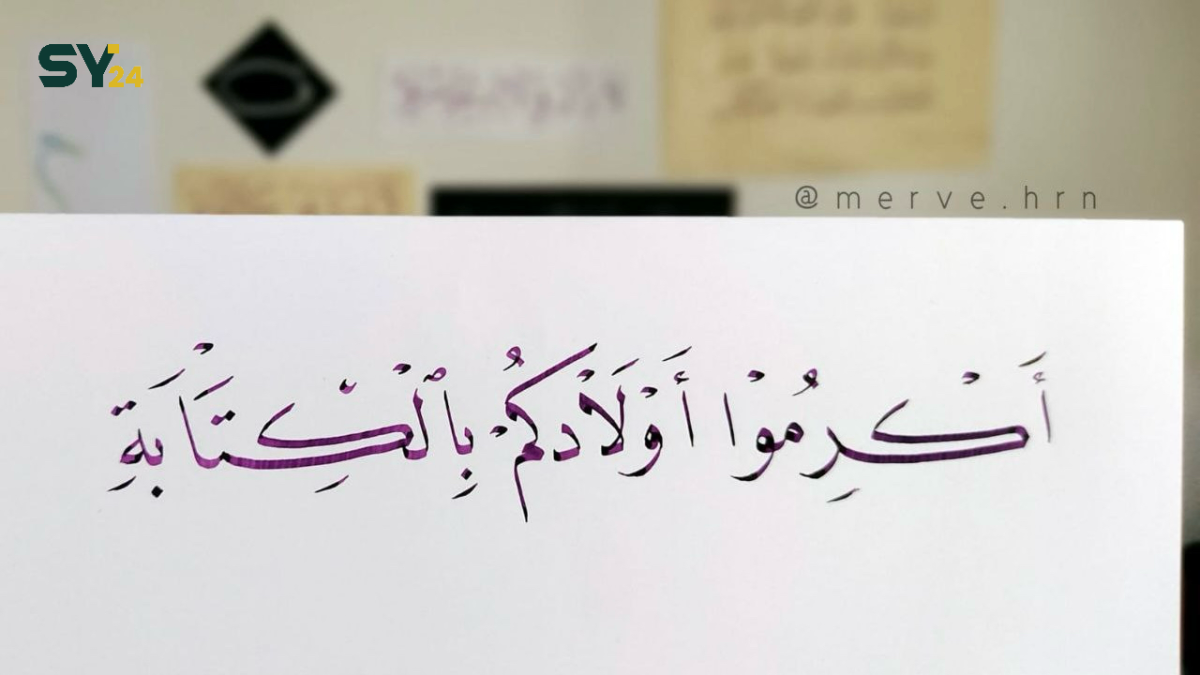 SY24
@merve.hrn
أَكْرِمُوْا أَوْلَادَكُمْ بِالْكِتَابَةِ